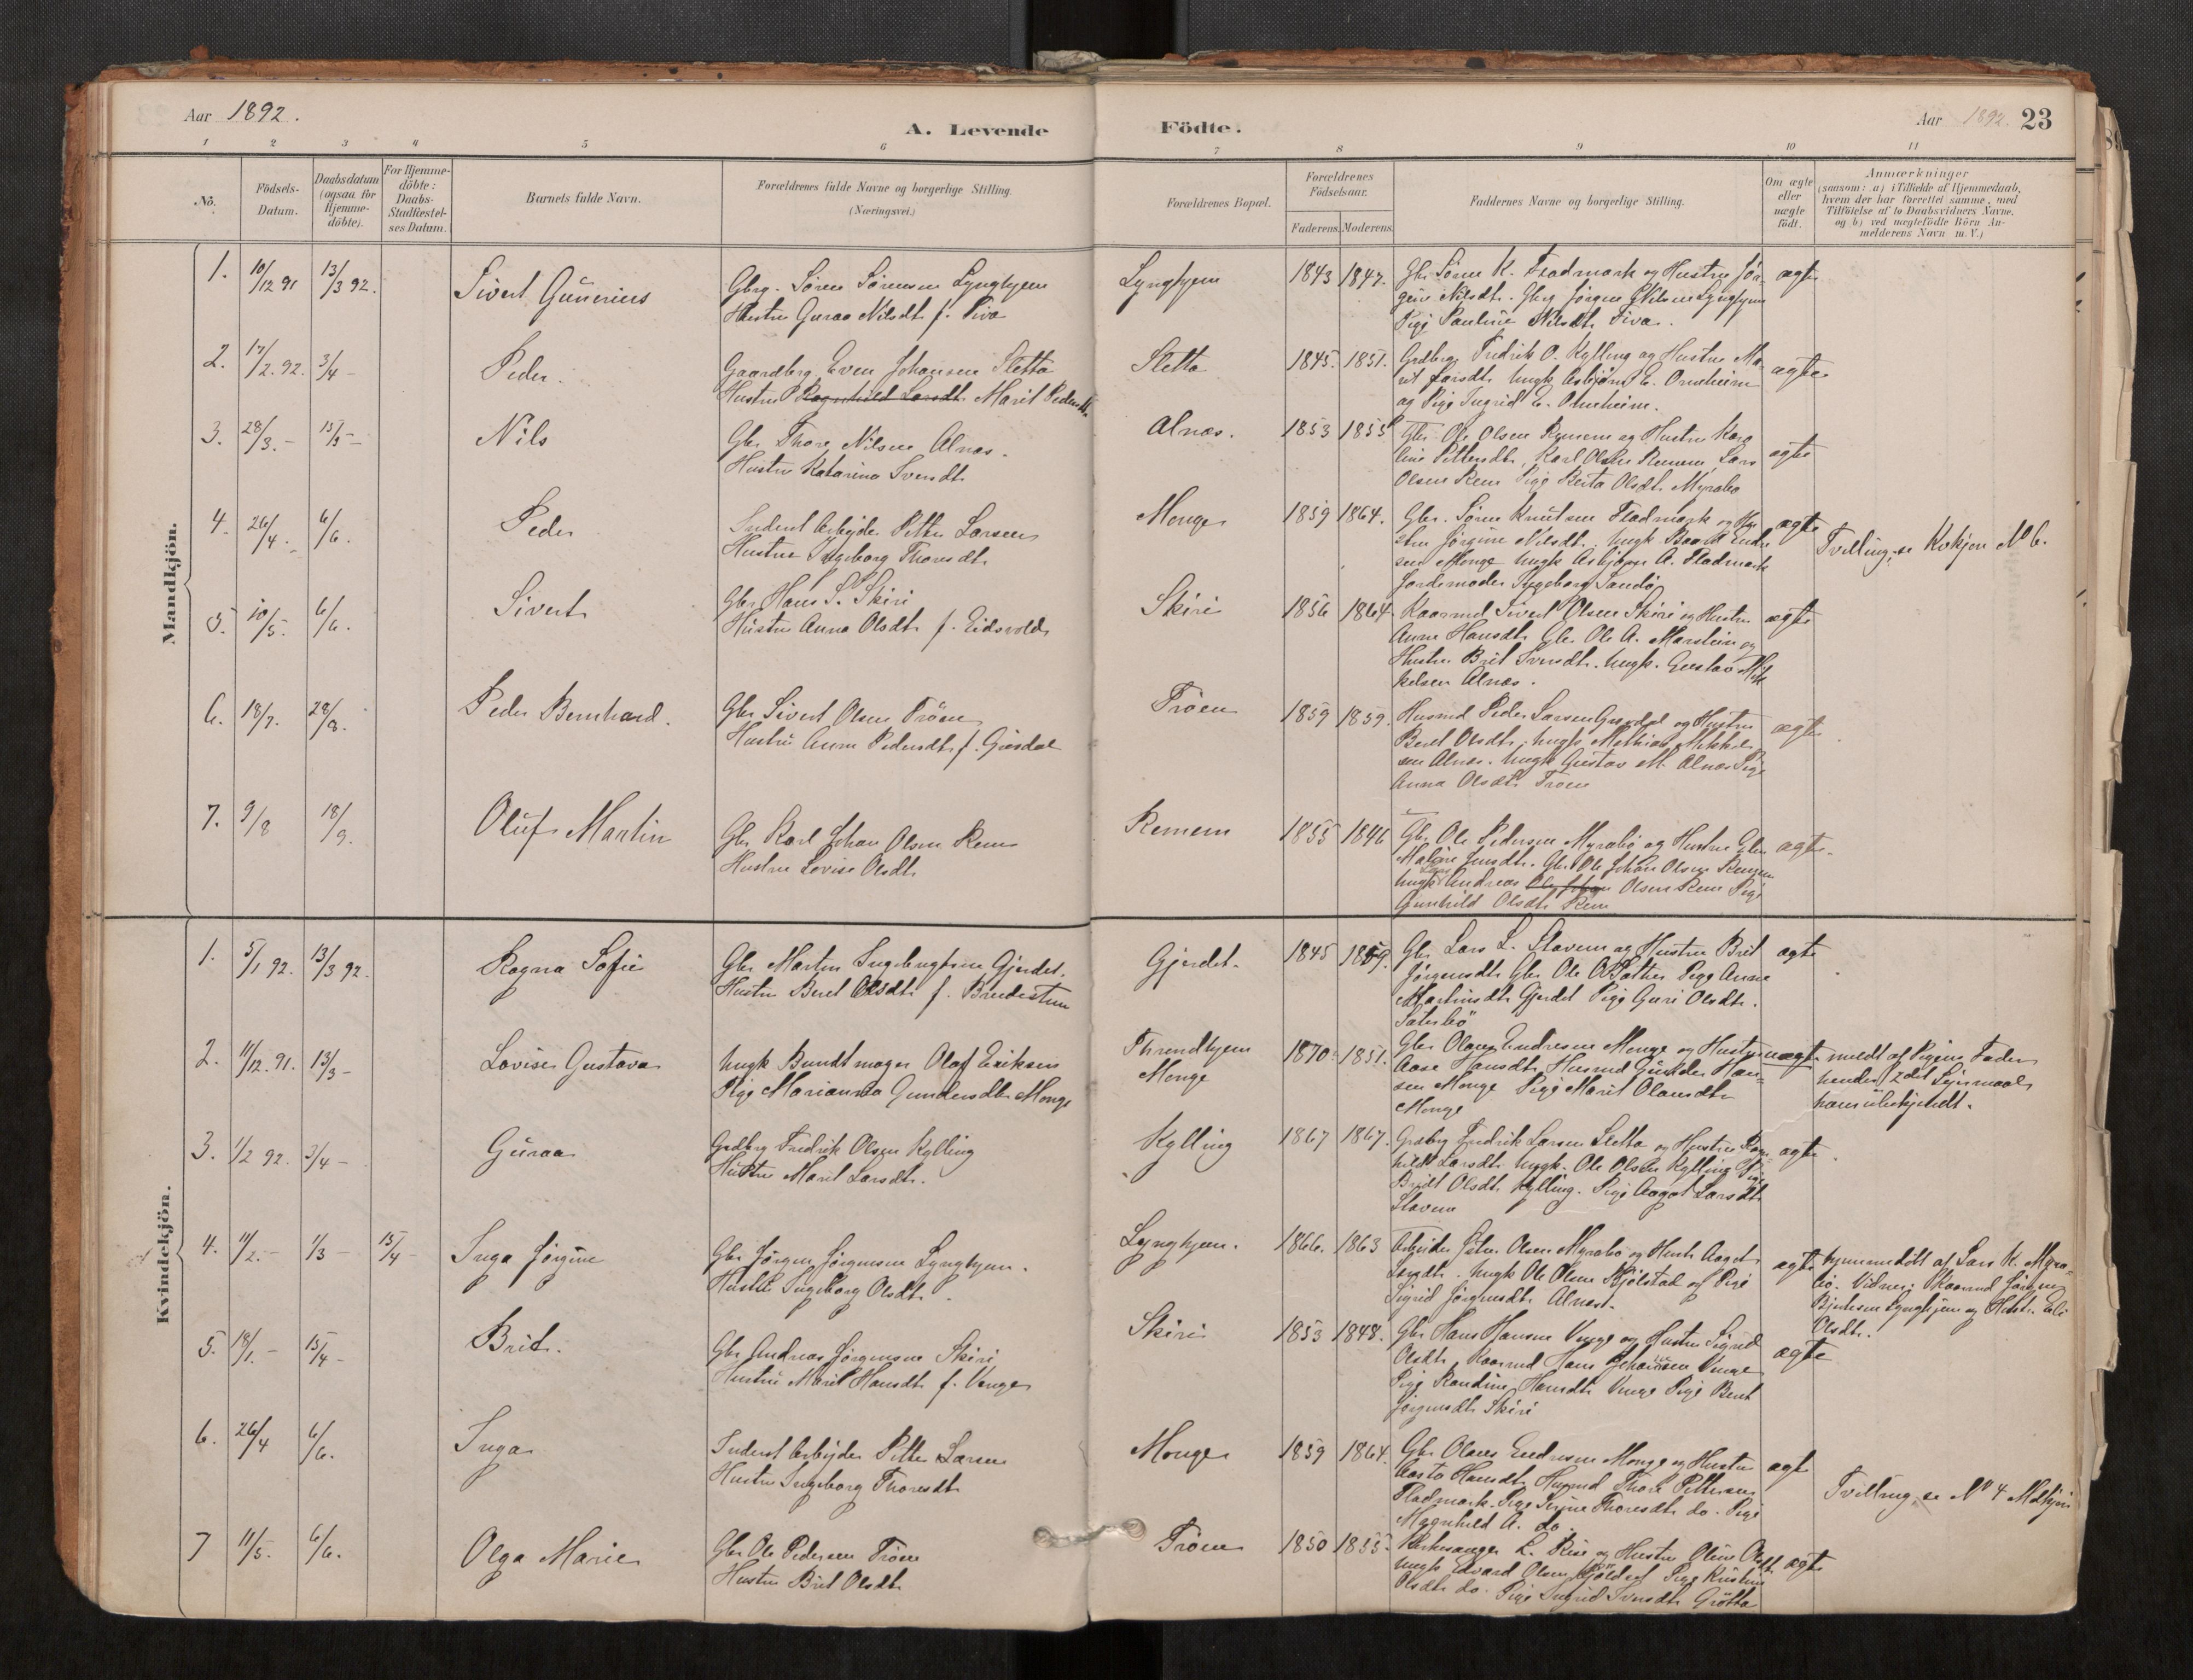 Aar 1892.
A. Levende Födte.
Aar 1892. 23
1 2 3 4 5 6 7 8 9 10 11
No.
Födsels-
Datum.
Daabsdatum
(ogsaa for
Hjemme-
döbte).
For Hjemme-
döbte:
Daabs-
Stadfæstel-
ses Datum.
Barnets fulde Navn.
Forældrenes fulde Navne og borgerlige Stilling.
(Næringsvei.)
Forældrenes Bopæl.
Forældrenes
Födselsaar.
Faderens. Moderens.
Faddernes Navne og borgerlige Stilling.
Om ægte
eller
uægte
födt.
Anmærkninger
(saasom: a) i Tilfælde af Hjemmedaab,
hvem der har forrettet samme, med
Tilföielse af to Daabsvidners Navne,
og b) ved uægtefödte Börn An-
melderens Navn m. V.)
Mandkjön.
1. 10/12 91 13/3 92. Sivert Gunerius
Gbrg. Sören Sörensen Lynghjem
Hustru Guraa Nilsdt. f. Fiva
Lynghjem 1843 1847.
Gbr Sören K. Fladmark og Hustru Jör-
gine Nilsdt. Gbrg Jörgen Nilsen Lynghjem
Pige Pauline Nilsdt. Fiva.
ægte
2. 17/2. 92. 3/4 - Peder.
Gaardbrg. Even Johansen Sletta
Hustru Ragnhild Larsdt. Marit Pedersdt.
Sletta 1845. 1851.
Grdbrg Fredrik O. Kylling og Hustru Ma-
rit Larsdt. Ungk Asbjörn E. Ormheim
og Pige Ingrid E. Ormheim.
ægte
3. 28/3. - 15/5 - Nils
Gbr Thore Nilsen Alnæs.
Hustru Katarina Svendt.
Alnæs. 1853 1855
Gbr. Ole Olsen Remem og Hustru Karo
line Pettersdt., Karl Olsen Remem, Lars
Olsen Rem Pige Berta Olsdt. Myrabø
ægte
4. 26/4. - 6/6. Peder
Inderst Arbejder Petter Larsen
Hustru Ingeborg Thoresdt.
Monge 1859 1864.
Gbr. Sören Knutsen Fladmark og Hu-
stru Jörgine Nilsdt. Ungk Baard Endre
sen Monge Ungk Asbjörn A. Fladmark
Jordemoder Ingeborg Sandö
ægte
Tvilling, se Kvkjön No 6.
5. 10/5. 6/6. Sivert
Gbr Hans S. Skiri
Hustru Anna Olsdt. f. Eidsvold
Skiri 1856 1864.
Kaarmd Sivert Olsen Skiri og Hustru
Anne Hansdt. Gbr. Ole A. Marstein og
Hustru Brit Svendt. Ungk. Gustav Mik
kelsen Alnæs.
ægte
6. 18/7. 28/8. Peder Bernhard.
Gbr Sivert Olsen Tröen
Hustru Anne Pedersdt. f. Gjerdal
Tröen 1859 1859.
Husmd Peder Larsen og Hustru
Beret Olsdt. Ungk Mathias Mikkel
sen Alnæs. Ungk Gustav M. Alnæs Pige
Anna Olsdt. Tröen
ægte
7. 9/8 18/9. Oluf Martin
Gbr Karl Johan Olsen Rem
Hustru Lovise Olsdt.
Remem 1855 1846
Gbr Ole Pedersen Myrabø og Hustru
Malene Jensdt. Gbr. Ole Johan Olsen Remem
Ungk Andreas Olsen Rem Pige
Gunhild Olsdt. Rem
ægte
Kvindekjön.
1. 5/1 92. 13/3 92. Ragna Sofie
Gbr Martin Ingebrigtsen Gjerdet.
Hustru Beret Olsdt. f. Bredestuen
Gjerdet. 1845 1859.
Gbr Lars L. Stavem og Hustru Brit
Jörgensdt. Gbr Ole O. Sæther Pige Anne
Martinsdt. Gjerdet Pige Guri Olsdt.
Sæterbö
ægte
2. 11/12. 91. 13/3 - Lovise Gustava
Ungk Bundtmager Olaf Eriksen
Pige Marianna Gundersdt. Monge
Throndhjem
Monge 1870 1851.
Gbr Olaus Endresen Monge og Hustru
Aase Hansdt. Husmd Gunder Han-
sen Monge Pige Marit Olausdt.
Monge
uægte
meldt af Pigens Fader
hendes 2det Leiermaal
hans ubekjendt.
3. 1/2 92. 3/4 - Guraa
Grdbrg Fredrik Olsen Kylling
Hustru Marit Larsdt.
Kylling 1867 1867.
Grdbrg Fredrik Larsen Sletta og Hustru Ragn-
hild Larsdt. Ungk. Ole Olsen Kylling Pige
Brit Olsdt. Kylling. Pige Aagot Larsdt.
Stavem
ægte
4. 11/2. - 1/3 - 15/4 - Inga Jörgine
Gbr Jörgen Jörgensen Lynghjem.
Hustru Ingeborg Olsdt.
Lynghjem. 1866. 1863
Arbeider Peter Olsen Myrabø og Hustr. Aagot
Ungk Ole Olsen Kjölstad og Pige
Sigrid Jörgensdt. Alnæs.
ægte
hjemmedöbt af Lars K. Myra-
bö. Vidner: Kaarmd Jörgen
Lynghjem og Hustr. Eli
Olsdt.
5. 18/1. - 15/4 - Brit.
Gbr Andreas Jörgensen Skiri
Hustru Marit Hansdt. f. Venge
Skiri 1853 1848.
Gbr Hans Hansen Venge og Hustru Sigrid
Olsdt. Kaarmd Hans Johansen Venge
Pige Randine Hansdt. Venge Pige Beret
Jörgensdt. Skiri
ægte
6. 26/4 6/6. Inga
Inderst Arbejder Petter Larsen
Hustru Ingeborg Thoresdt.
Monge 1859 1864.
Gbr Olaus Endresen Monge og Hustru
Hansdt. Husmd Thore Pettersen
Fladmark. Pige Thoresdt. do. Pige
Magnhild A. do.
ægt
Tvilling, se No 4 Mdkjön
7 11/5. 6/6. Olga Marie
Gbr Ole Pedersen Tröen
Hustru Brit Olsdt.
Tröen 1850 1855.
Kirkesanger L. Rise og Hustru Oline Olsdt.
Ungk Edvard Olsen Pige Kristine
Olsdt. do. Pige Ingrid Svendt. Grötta
ægte